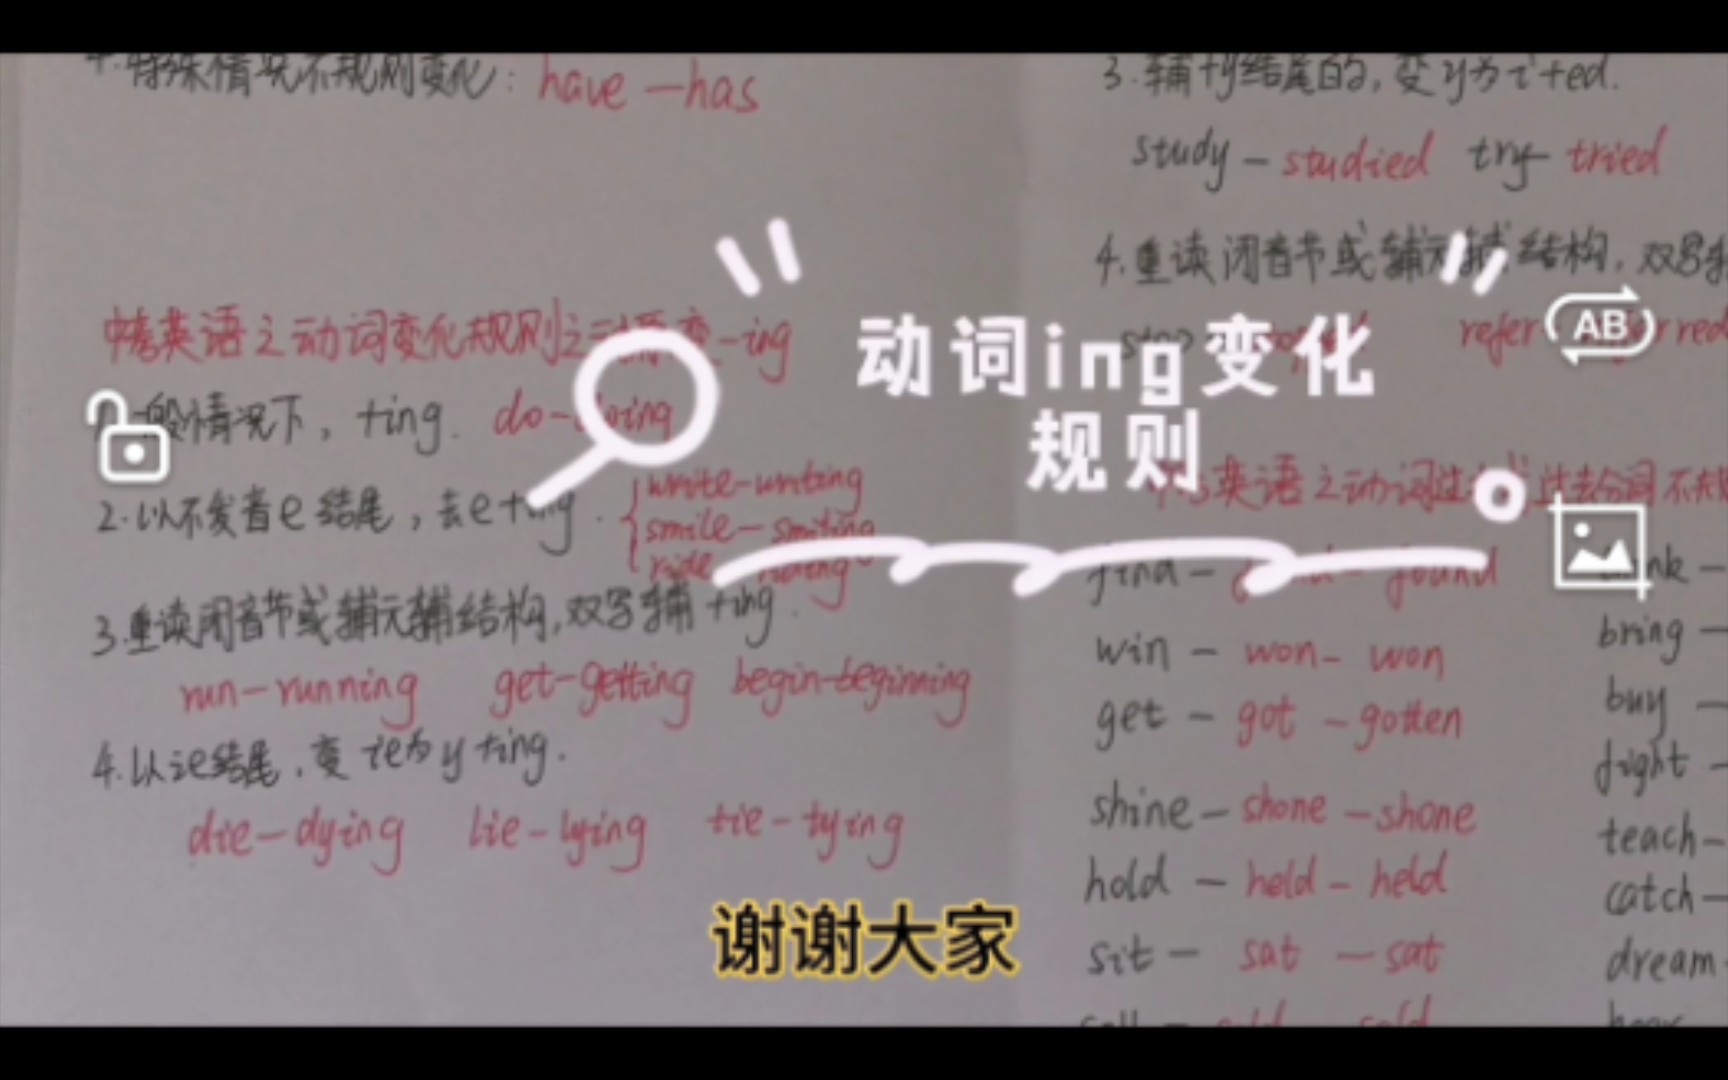 4.特殊情况不规则变化：have—has
中考英语之动词变化规则之动词变-ing
一般情况下，+ing. do-doing
2.以不发音e结尾，去e+ing.
write-writing
smile-smiling
ride-riding
3.重读闭音节或辅元辅结构,双写辅+ing.
run-running get-getting begin-beginning
4.以ie结尾,变ie为y+ing.
die-dying lie-lying tie-tying
3.辅+y结尾的,变y为i+ed.
study-studied try-tried
4.重读闭音节或辅元辅结构,双写
refer
英语之动词过去分词不规
find- found
win-won-won
get-got-gotten
shine-shone-shone
hold-held-held
sit-sat-sat
bring-
buy-
fight-
teach-
catch-
dream-
动词ing变化
规则
AB
谢谢大家